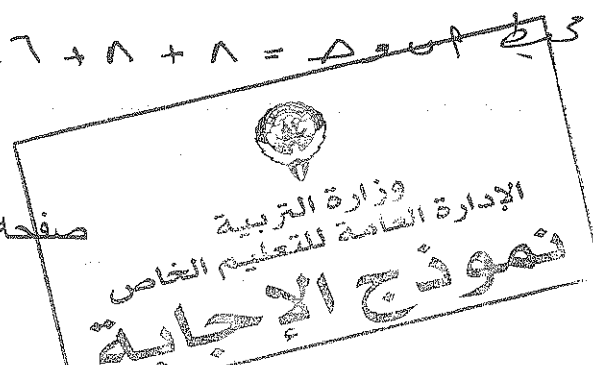 = ٨ + ٨ + ٦
صفحة
وزارة التربية
الإدارة العامة للتعليم الخاص
نموذج الإجابة